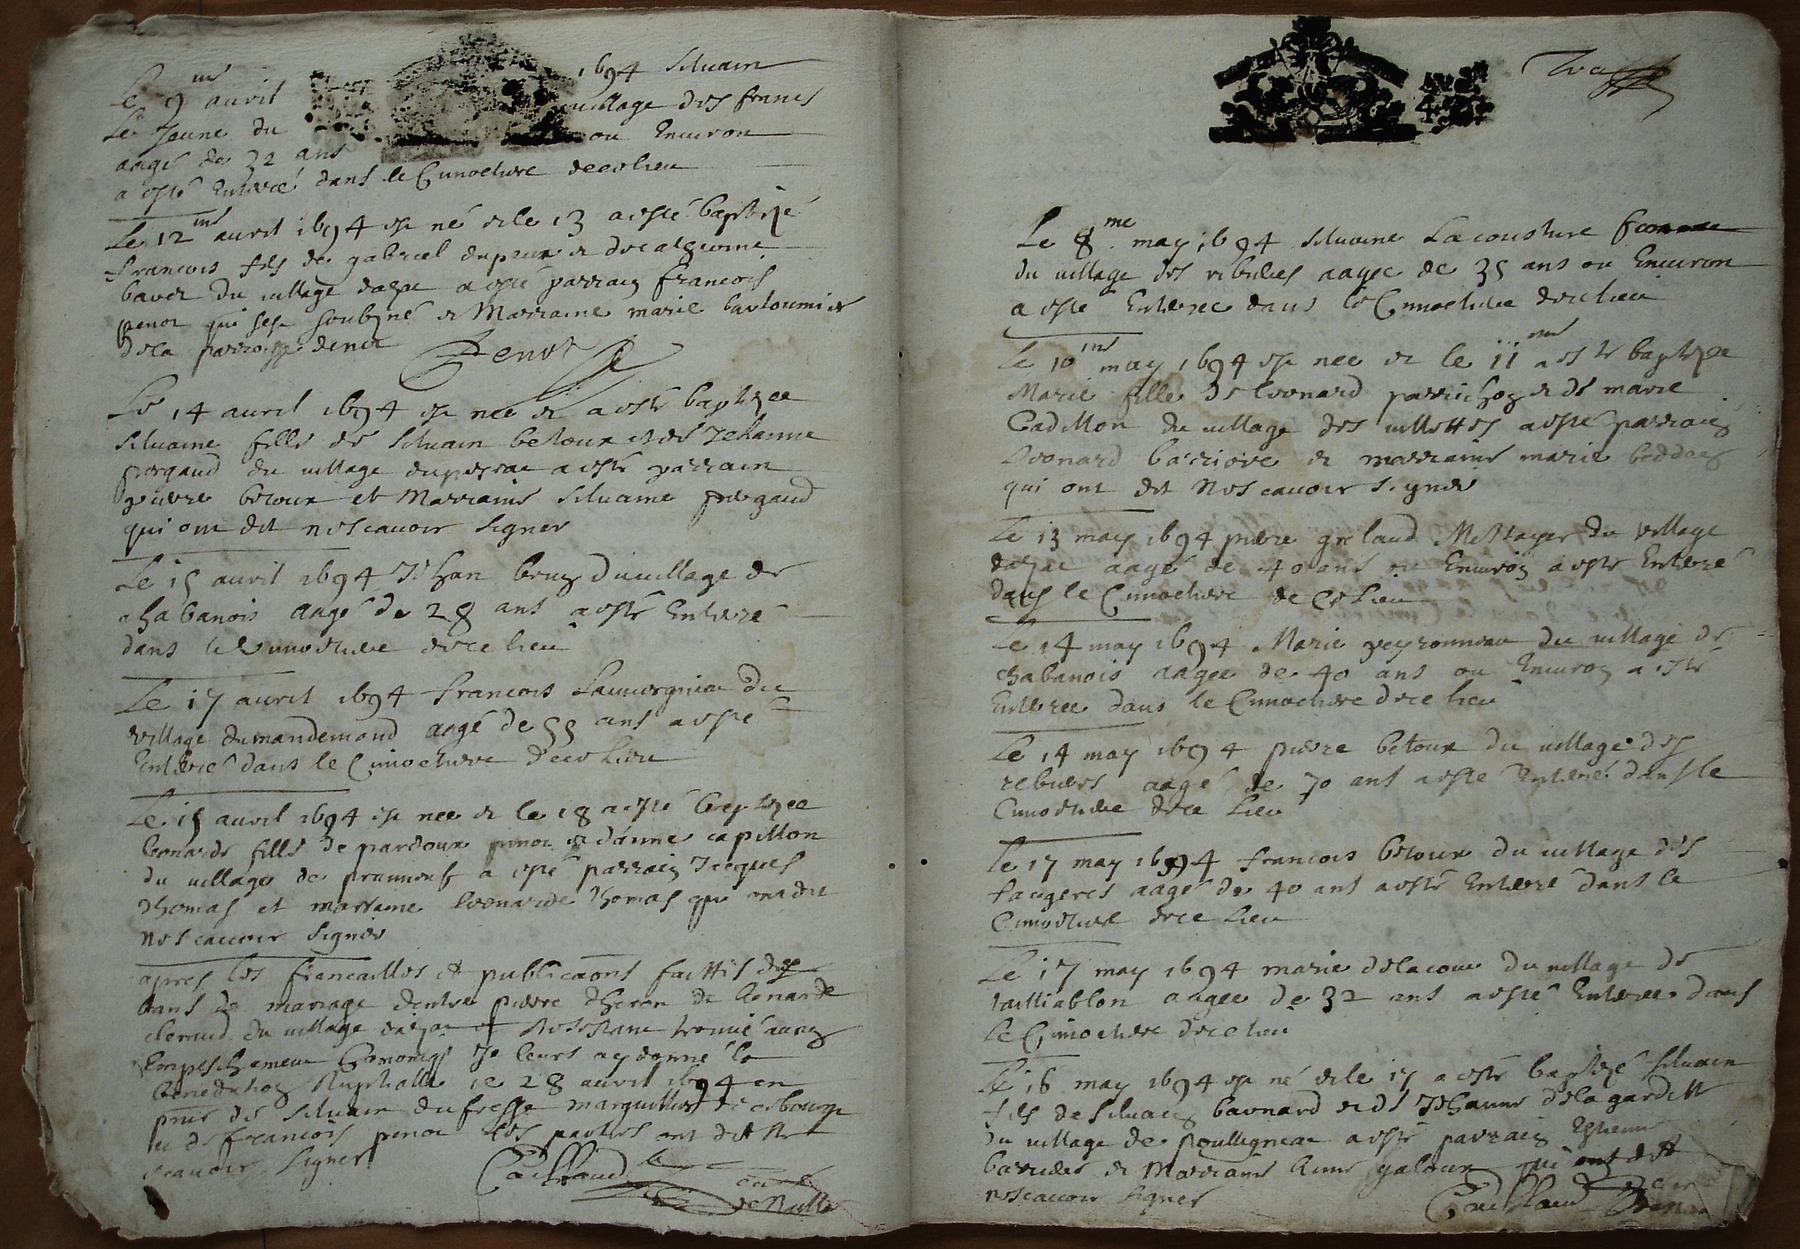 Le 9me auril 1694 Siluain
Le Jeune du village des francs
aagé de 32 ans ou Enuiron
a esté Enterré dans le Cimoetiere decelieu
Le 12me auril 1694 est né et le 13 a esté baptizé
francois fils de gabriel dupeux et de
baver du uillage a esté parrain francois
penot qui sest soubzné et Marraine marie bartoumier
dela parroisse
Penot
Le 14 auril 1694 est nee et a esté baptizee
Siluaine fille de Siluain betoux et de Jehanne
du uillage a esté parrain
pierre betoux et Marraine Siluaine
qui ont dit nescauoir Signer
Le 15 auril 1694 Jehan du uillage de
chabanois aagé de 28 ans a esté Enterré
dans le Cimoetiere dece lieu
Le 17 auril 1694 francois Lauuergniac du
village dumandemond aagé de 55 ans a esté
Enterré dans le Cimoetiere dece Lieu
Le 15 auril 1694 est nee et le 18 a esté baptizee
leonarde fille de pardoux penot et danne capillon
du uillage de a esté parrain Jacques
thomas et marraine leonarde thomas qui ont dit
nescauoir Signer
apres les fiencailles et publicaons faittes
dans de mariage dentre pierre de lenarde
du uillage et ne sestant trouué aucun
Empeschement Canonicq Je leurs ay donné la
benediction Nuptialle ce 28 auril 1694 en
pnce de Siluain dufresse marguillier de cebourg
et de francois penot les parties ont dit ne
scauoir Signer
Le 8me may 1694 Siluaine Lacousture
du uillage des ribieres aagee de 35 ans ou Enuiron
a esté Enterree dans le Cimoetiere decelieu
Le 10me may 1694 est nee et le 11me a esté baptizee
Marie fille de Leonard parrichon et de marie
Cadillon du uillage des uillettes a esté parrain
Leonard et marraine marie
qui ont dit Nescauoir Signer
Le 13 may 1694 pierre grelaud Mettayer du Village
aagé de 40 ans ou Enuiron a esté Enterré
dans le Cimoetiere de Ce Lieu
Le 14 may 1694 Marie peyronneau du uillage de
chabanois aagee de 40 ans ou Enuiron a esté
Enterree dans le Cimoetiere dece lieu
Le 14 may 1694 pierre betoux du uillage des
rebieres aagé de 70 ans a esté Enterré dans le
Cimoetiere dece Lieu
Le 17 may 1694 francois betoux du uillage des
faugeres aagé de 40 ans a esté Enterré dans le
Cimoetiere dece Lieu
Le 17 may 1694 marie delacoux du uillage de
tailliablon aagee de 32 ans a esté Enterree dans
le Cimoetiere dece lieu
Le 16 may 1694 est né et le 17 a esté baptizé Siluain
fils de Siluain baunard et de Jehanne delagardette
du uillage de poulligneac a esté parrain Estienne
et Marraine Anne galoux qui ont dit
nescauoir Signer